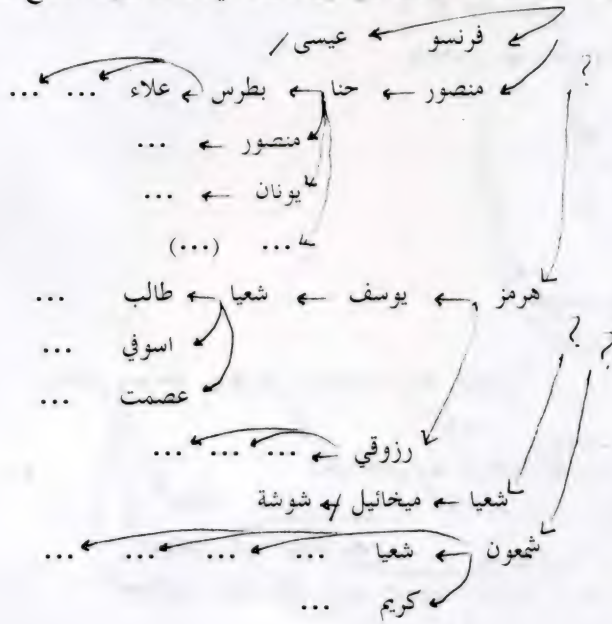 فرنسو عيسى
منصور حنا بطرس علاء ... ...
منصور ...
يونان ...
... (...)
هرمز يوسف شعيا طالب ...
اسوفي ...
عصمت ...
رزوقي ... ... ...
شعيا ميخائيل شوشة
شمعون شعيا ... ... ... ...
كريم ...
? ? ?